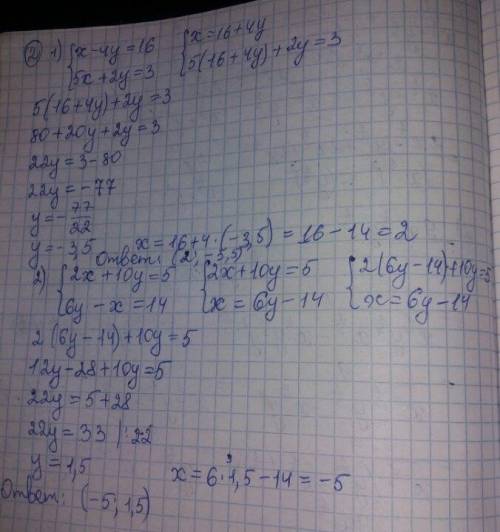 ② 1) { x-4y=16 { x=16+4y
5x+2y=3 5(16+4y)+2y=3
5(16+4y)+2y=3
80+20y+2y=3
22y=3-80
22y=-77
y=-77/22
y=-3,5 x=16+4·(-3,5)=16-14=2
Ответ: (2; -3,5)
2) { 2x+10y=5 { 2x+10y=5 { 2(6y-14)+10y=5
6y-x=14 x=6y-14 x=6y-14
2(6y-14)+10y=5
12y-28+10y=5
22y=5+28
22y=33 |:22
y=1,5 x=6·1,5-14=-5
Ответ: (-5; 1,5)